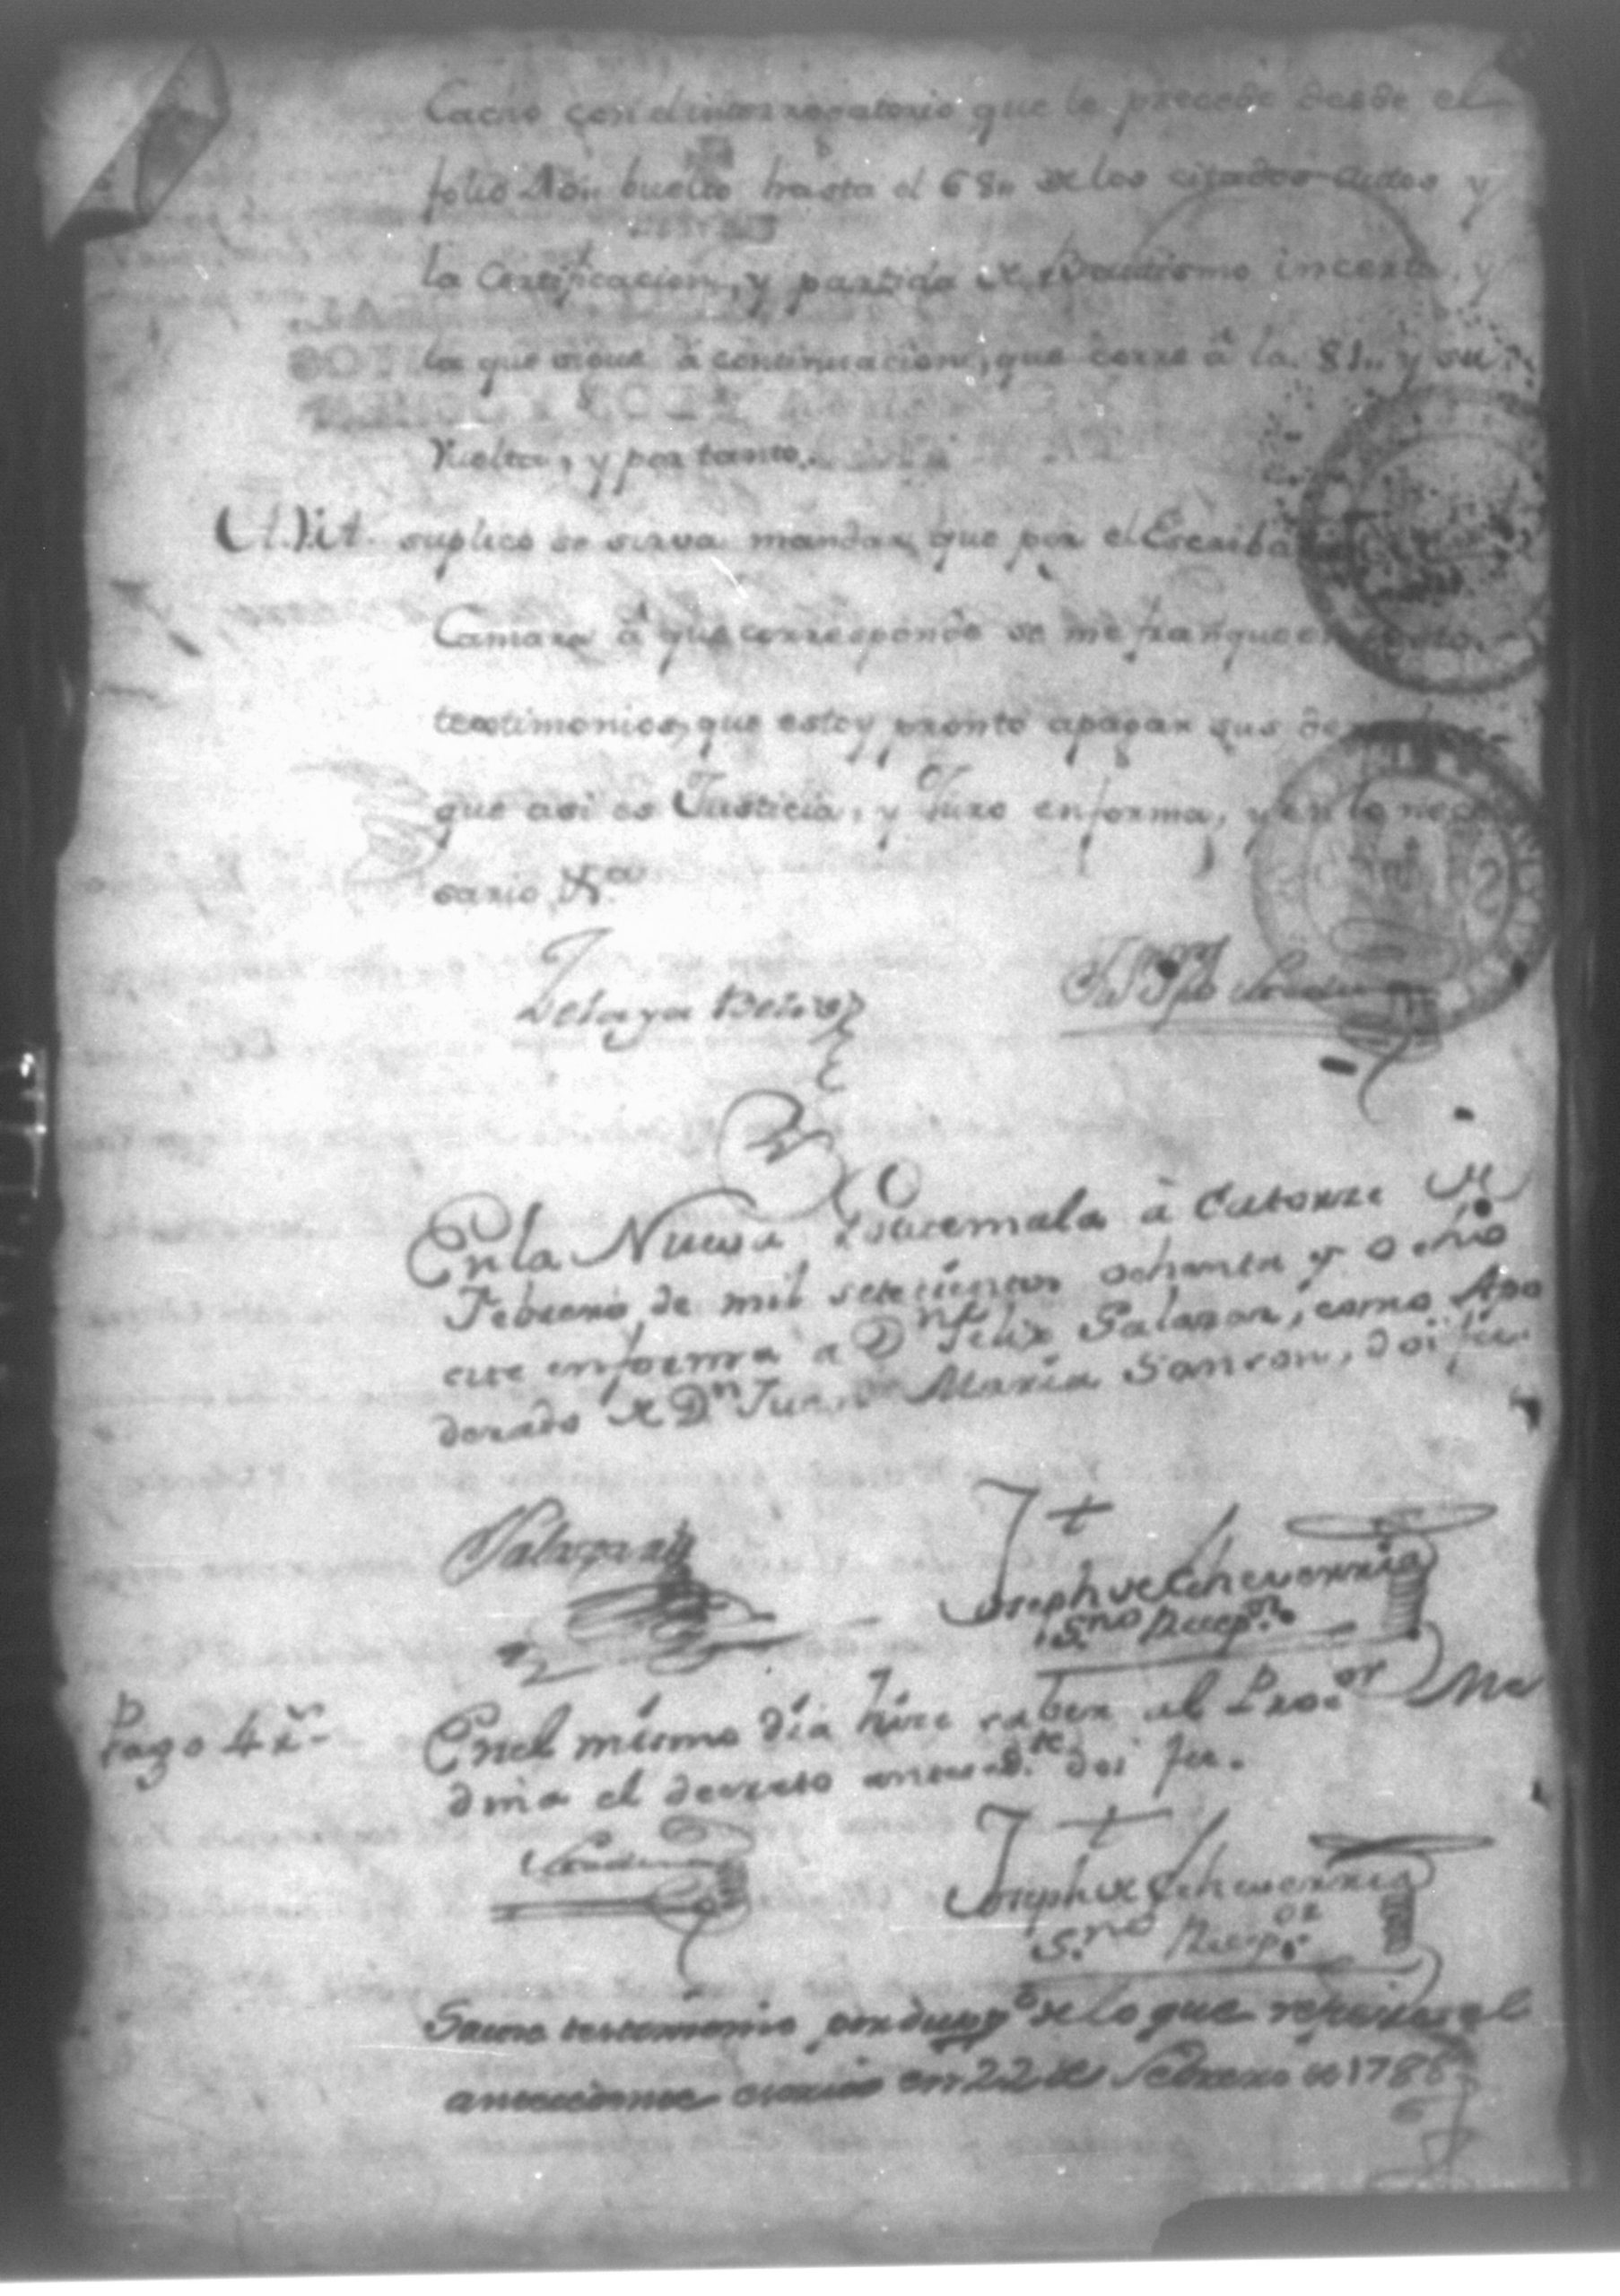 Cacho con el interrogatorio que le precede desde el
folio buelto hasta el 68,, de los citados autos y
la Certificacion, y partida de Bautismo incerta, y
la que sigue á continuacion, que corre á la 81,, y su
Vuelta, y por tanto.
suplico se sirva mandar, que por el Escriba
Camara á que corresponde se me franqueen
testimonios, que estoy pronto apagar sus
que asi es Justicia, y Juro enforma, y en lo nece
sario &ca
Zelaya
En la Nueva Guatemala à Catorze de
Febrero de mil setecientos ochenta y ocho
cite enforma a Dn Felix Salazar, como Apo
derado de Dn Juan Maria Sanron, doi fee.
Salazar
Joseph de Echeverria
Sno Recepor
Pago 4 rs
En el mismo dia hice saber al Procor Me
dina el decreto antecedte doi fee.
Medina
Joseph de Echeverria
Sno Recepor
Sacose testimonio por dupdo de lo que refiere el
antecedente escrito en 22 de Febrero de 1788